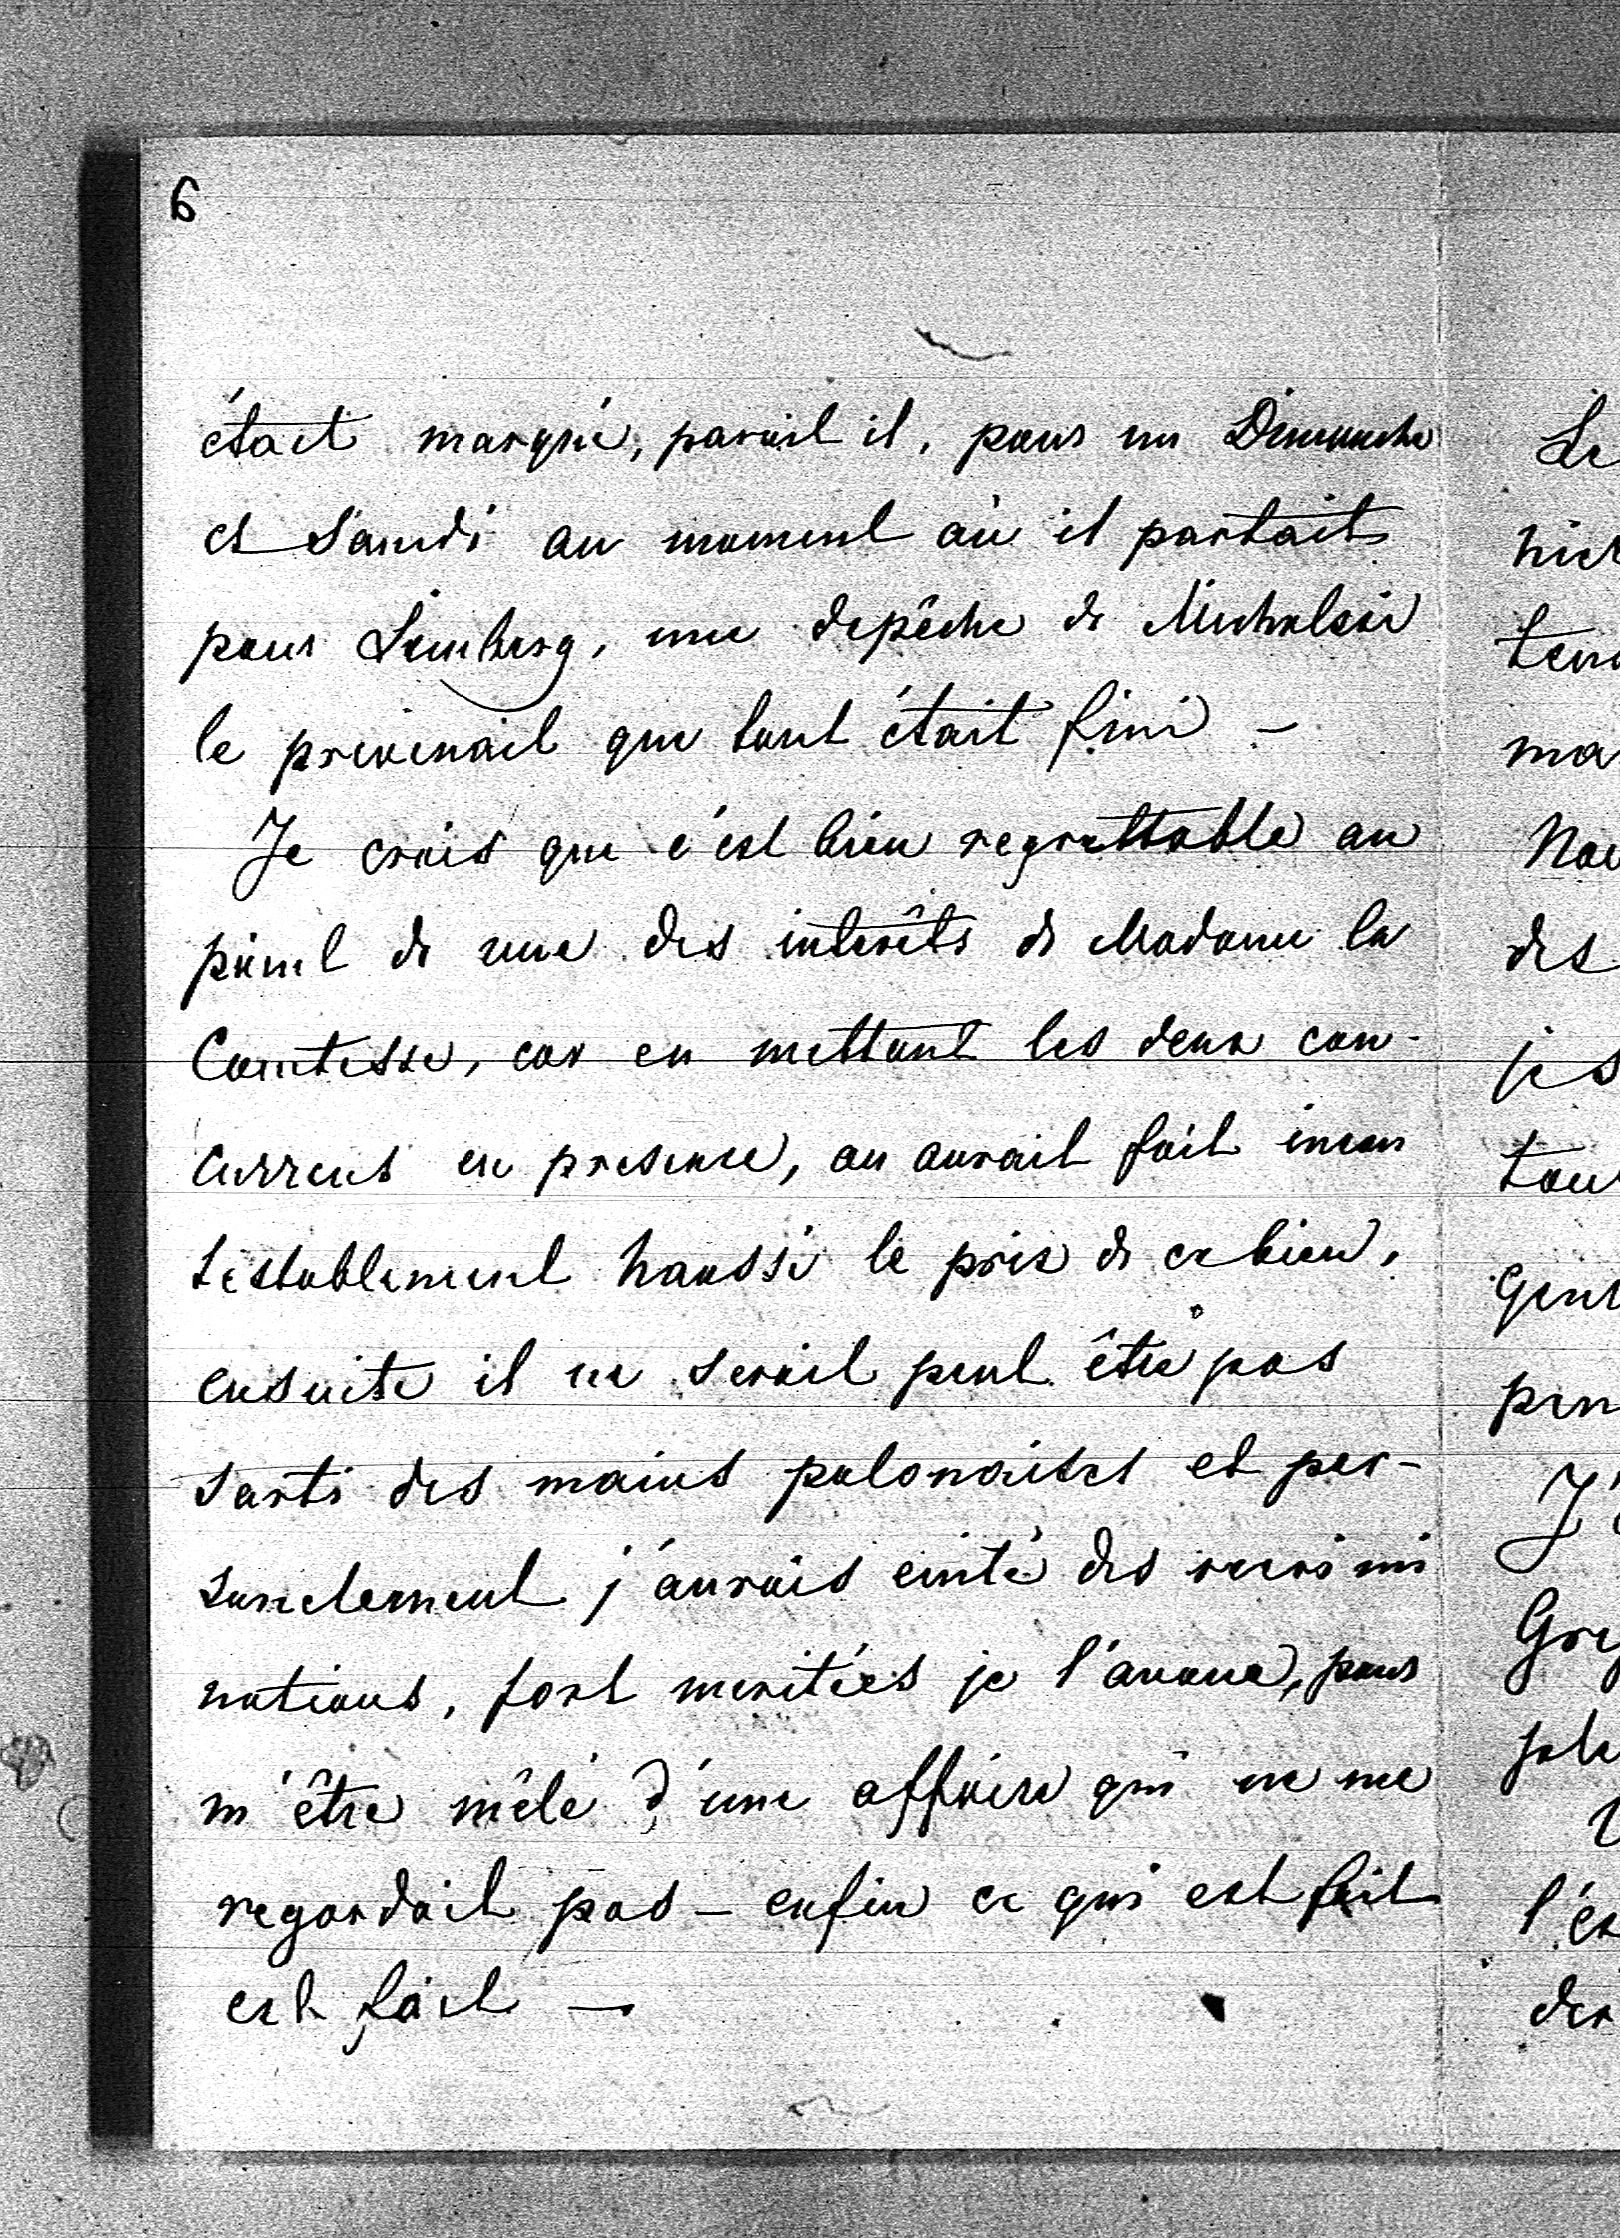 6
était marqué, parait il, pour un Dimanche
et Samdi au moment où il partait
pour Lemberg, une depêche de Michalski
le prevenait que tout était fini –
Je crois que c'est bien regrettable au
point de vue des interêts de Madame la
Comtesse, car en mettant les deux con-
currents en presence, on aurait fait incon
testablement haussé le prix de ce bien,
ensuite il ne serait peut être pas
sorti des mains polonaises et per-
sonelement j'aurais evité des recrimi
nations, fort meritées je l'avoue, pour
m'être mêlé d'une affaire qui ne me
regardait pas – enfin ce qui est fait
est fait –
Le
hier
ma
des
J'
l'